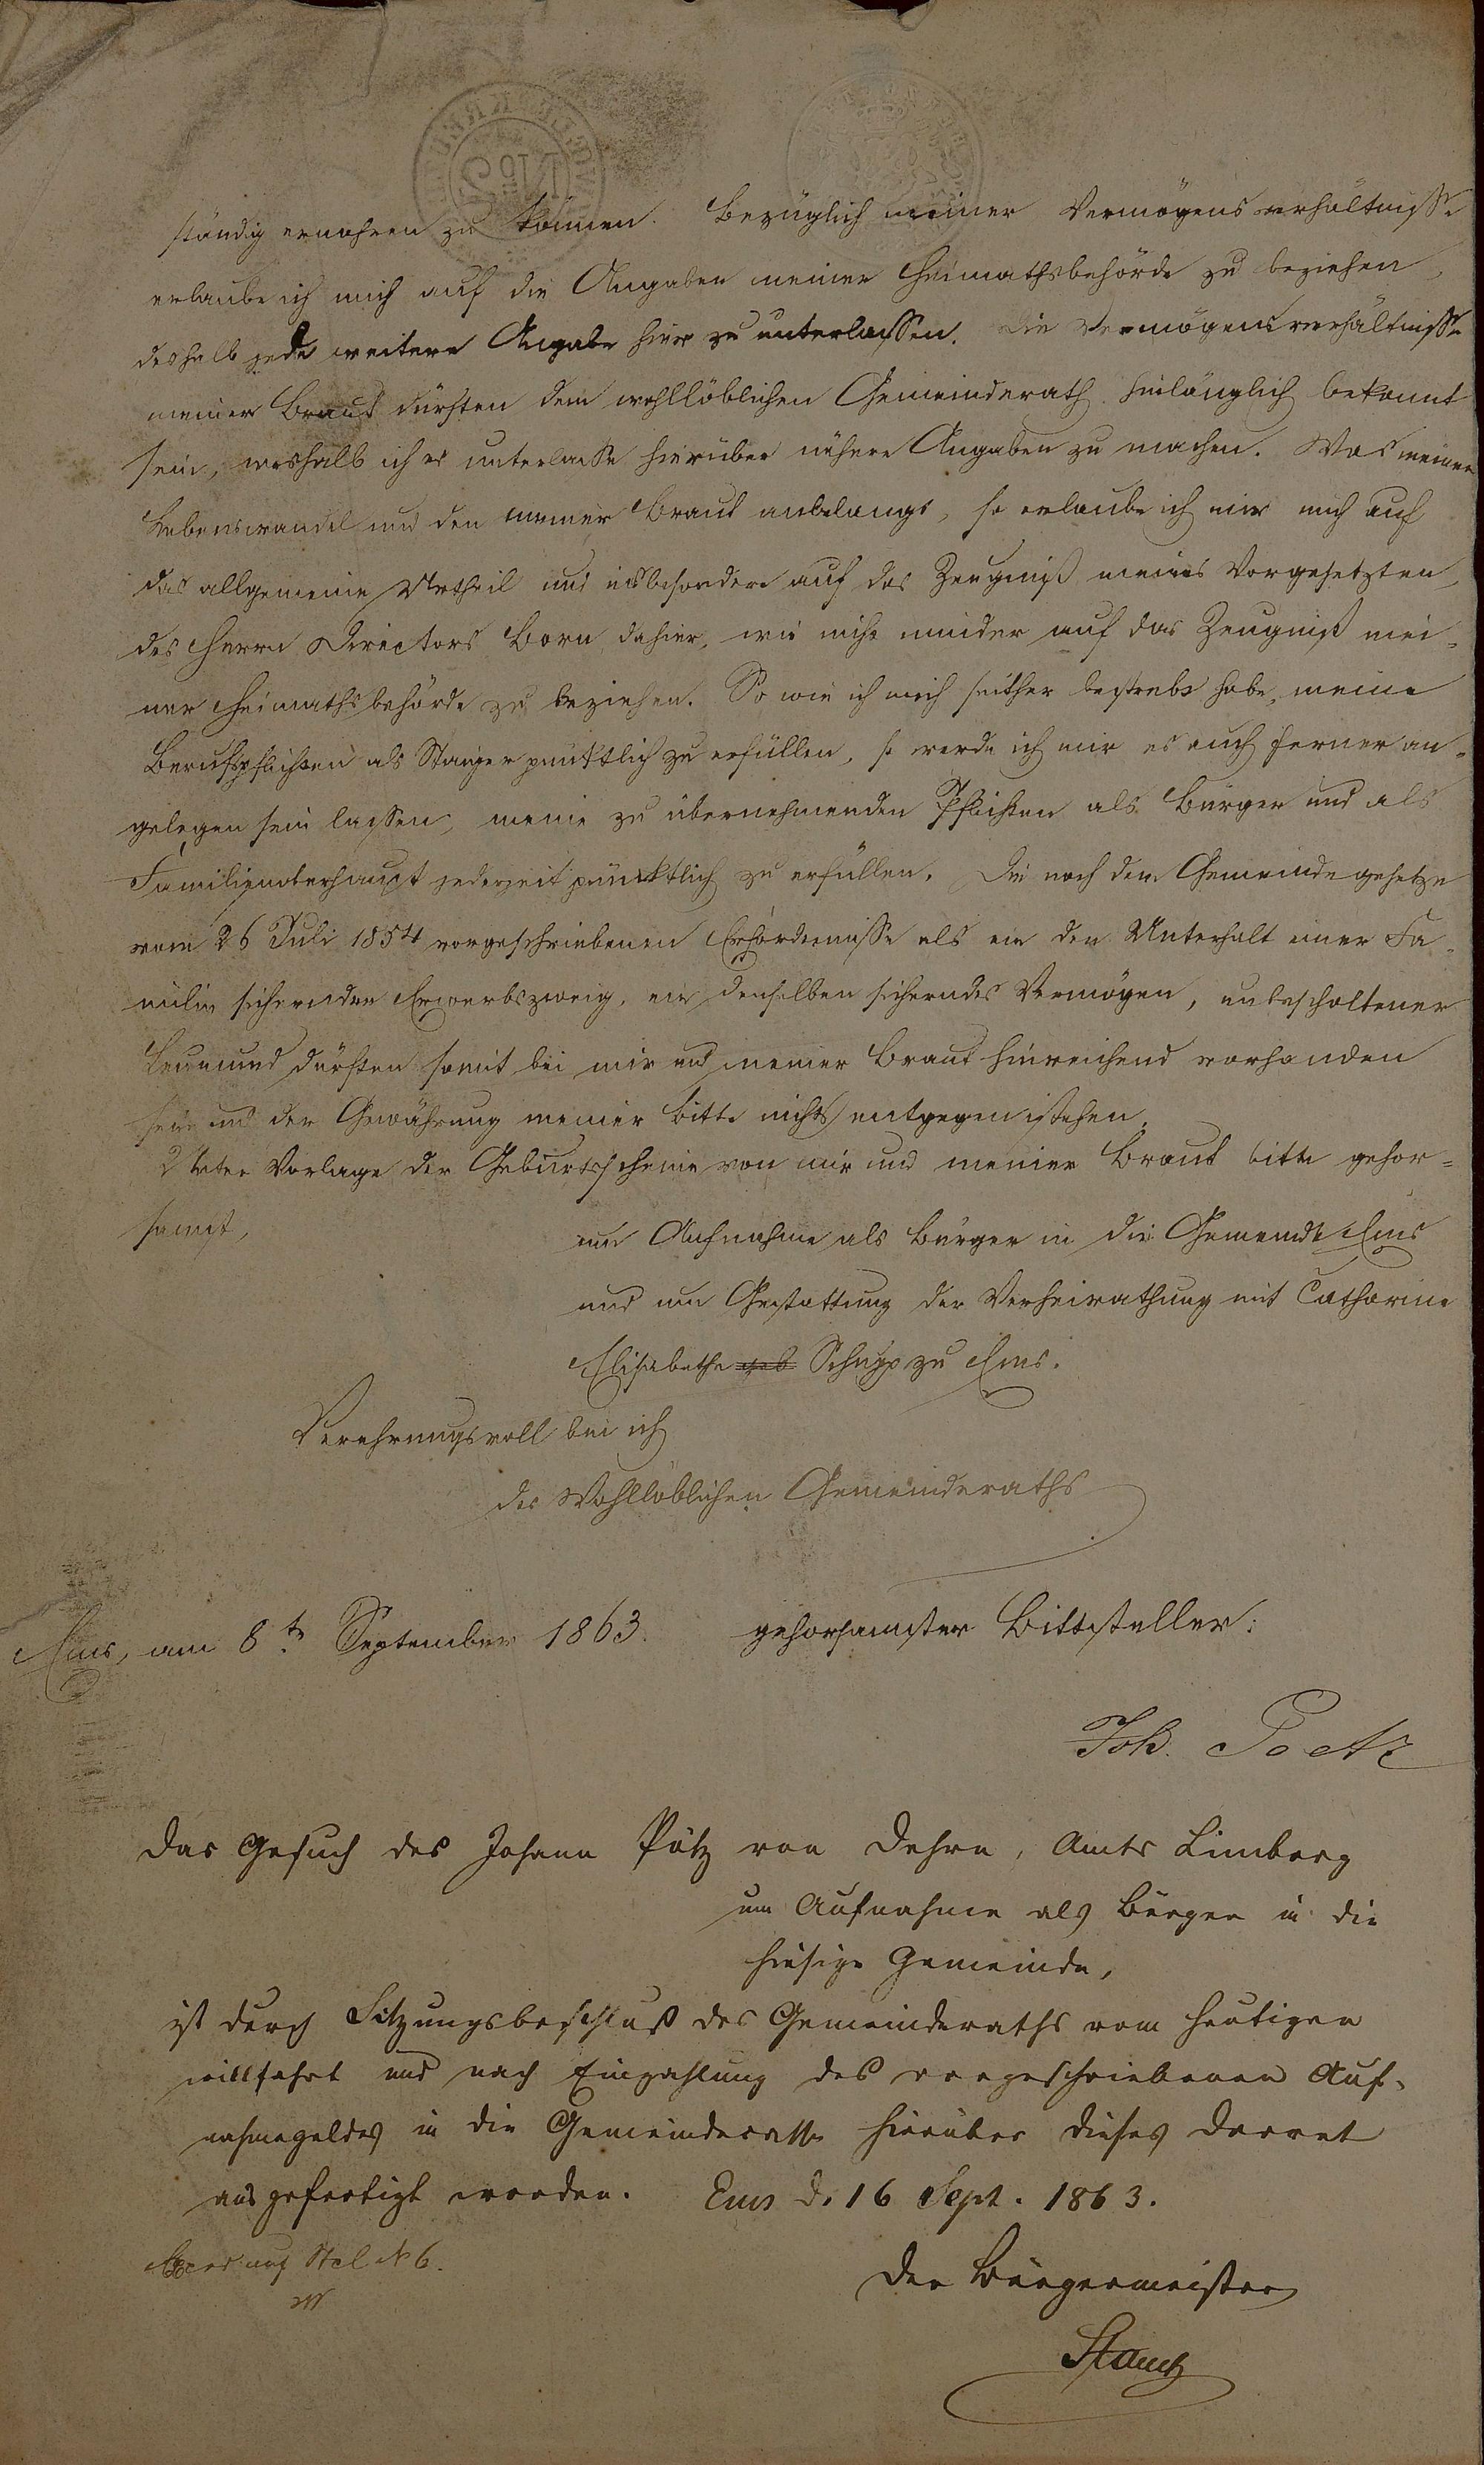 ständig ernähren zu können. Bezüglich meiner Vermögensverhältnisse
erlaube ich mich auf die Angaben meiner Heimathsbehörde zu beziehen,
deshalb jede weitere Angabe hier zu unterlassen. Die Vermögensverhältnisse
meiner Braut dürften dem wohllöblichen Gemeinderath hinlänglich bekannt
sein, weshalb ich es unterlasse hierüber nähere Angaben zu machen. Was meinen
Lebenswandel und den meiner Braut anbelangt, so erlaube ich mir mich auf
das allgemeine Urtheil und insbesondere auf das Zeugniß meines Vorgesetzten,
des Herrn Directors Born dahier, wie nicht minder auf das Zeugniß mei-
ner Heimathsbehörde zu beziehen. So wie ich mich seither bestrebt habe, meine
Berufspflichten als Steiger pünktlich zu erfüllen, so werde ich mir es auch ferner an-
gelegen sein lassen, meine zu übernehmenden Pflichten als Bürger und als
Familienoberhaupt jederzeit pünktlich zu erfüllen. Die nach dem Gemeindegesetze
vom 26 Juli 1854 vorgeschriebenen Erfordernisse als ein den Unterhalt einer Fa-
milie sichernder Erwerbszweig, ein denselben sicherndes Vermögen, unbescholtener
Leumund dürften somit bei mir und meiner Braut hinreichend vorhanden
sein und der Gewährung meiner Bitte nichts entgegenstehen.
Unter Vorlage der Geburtsscheine von mir und meiner Braut bitte gehor-
samst,
um Aufnahme als Bürger in die Gemeinde Ems
und um Gestattung der Verheirathung mit Catharine
Elisabethe geb Schupp zu Ems.
Verehrungsvoll bin ich
des Wohllöblichen Gemeinderaths
Ems, am 8te September 1863. gehorsamster Bittsteller:
Joh. Poetz
Das Gesuch des Johann Pötz von Dehrn, Amts Limburg
um Aufnahme als Bürger in die
hiesige Gemeinde,
ist durch Sitzungsbeschluß des Gemeinderaths vom Heutigen
willfahrt und nach Einzahlung des vorgeschriebenen Auf-
nahmegeldes in die Gemeindecasse hierüber dieses Decret
ausgefertigt worden. Ems d. 16 Sept. 1863.
Der Bürgermeister